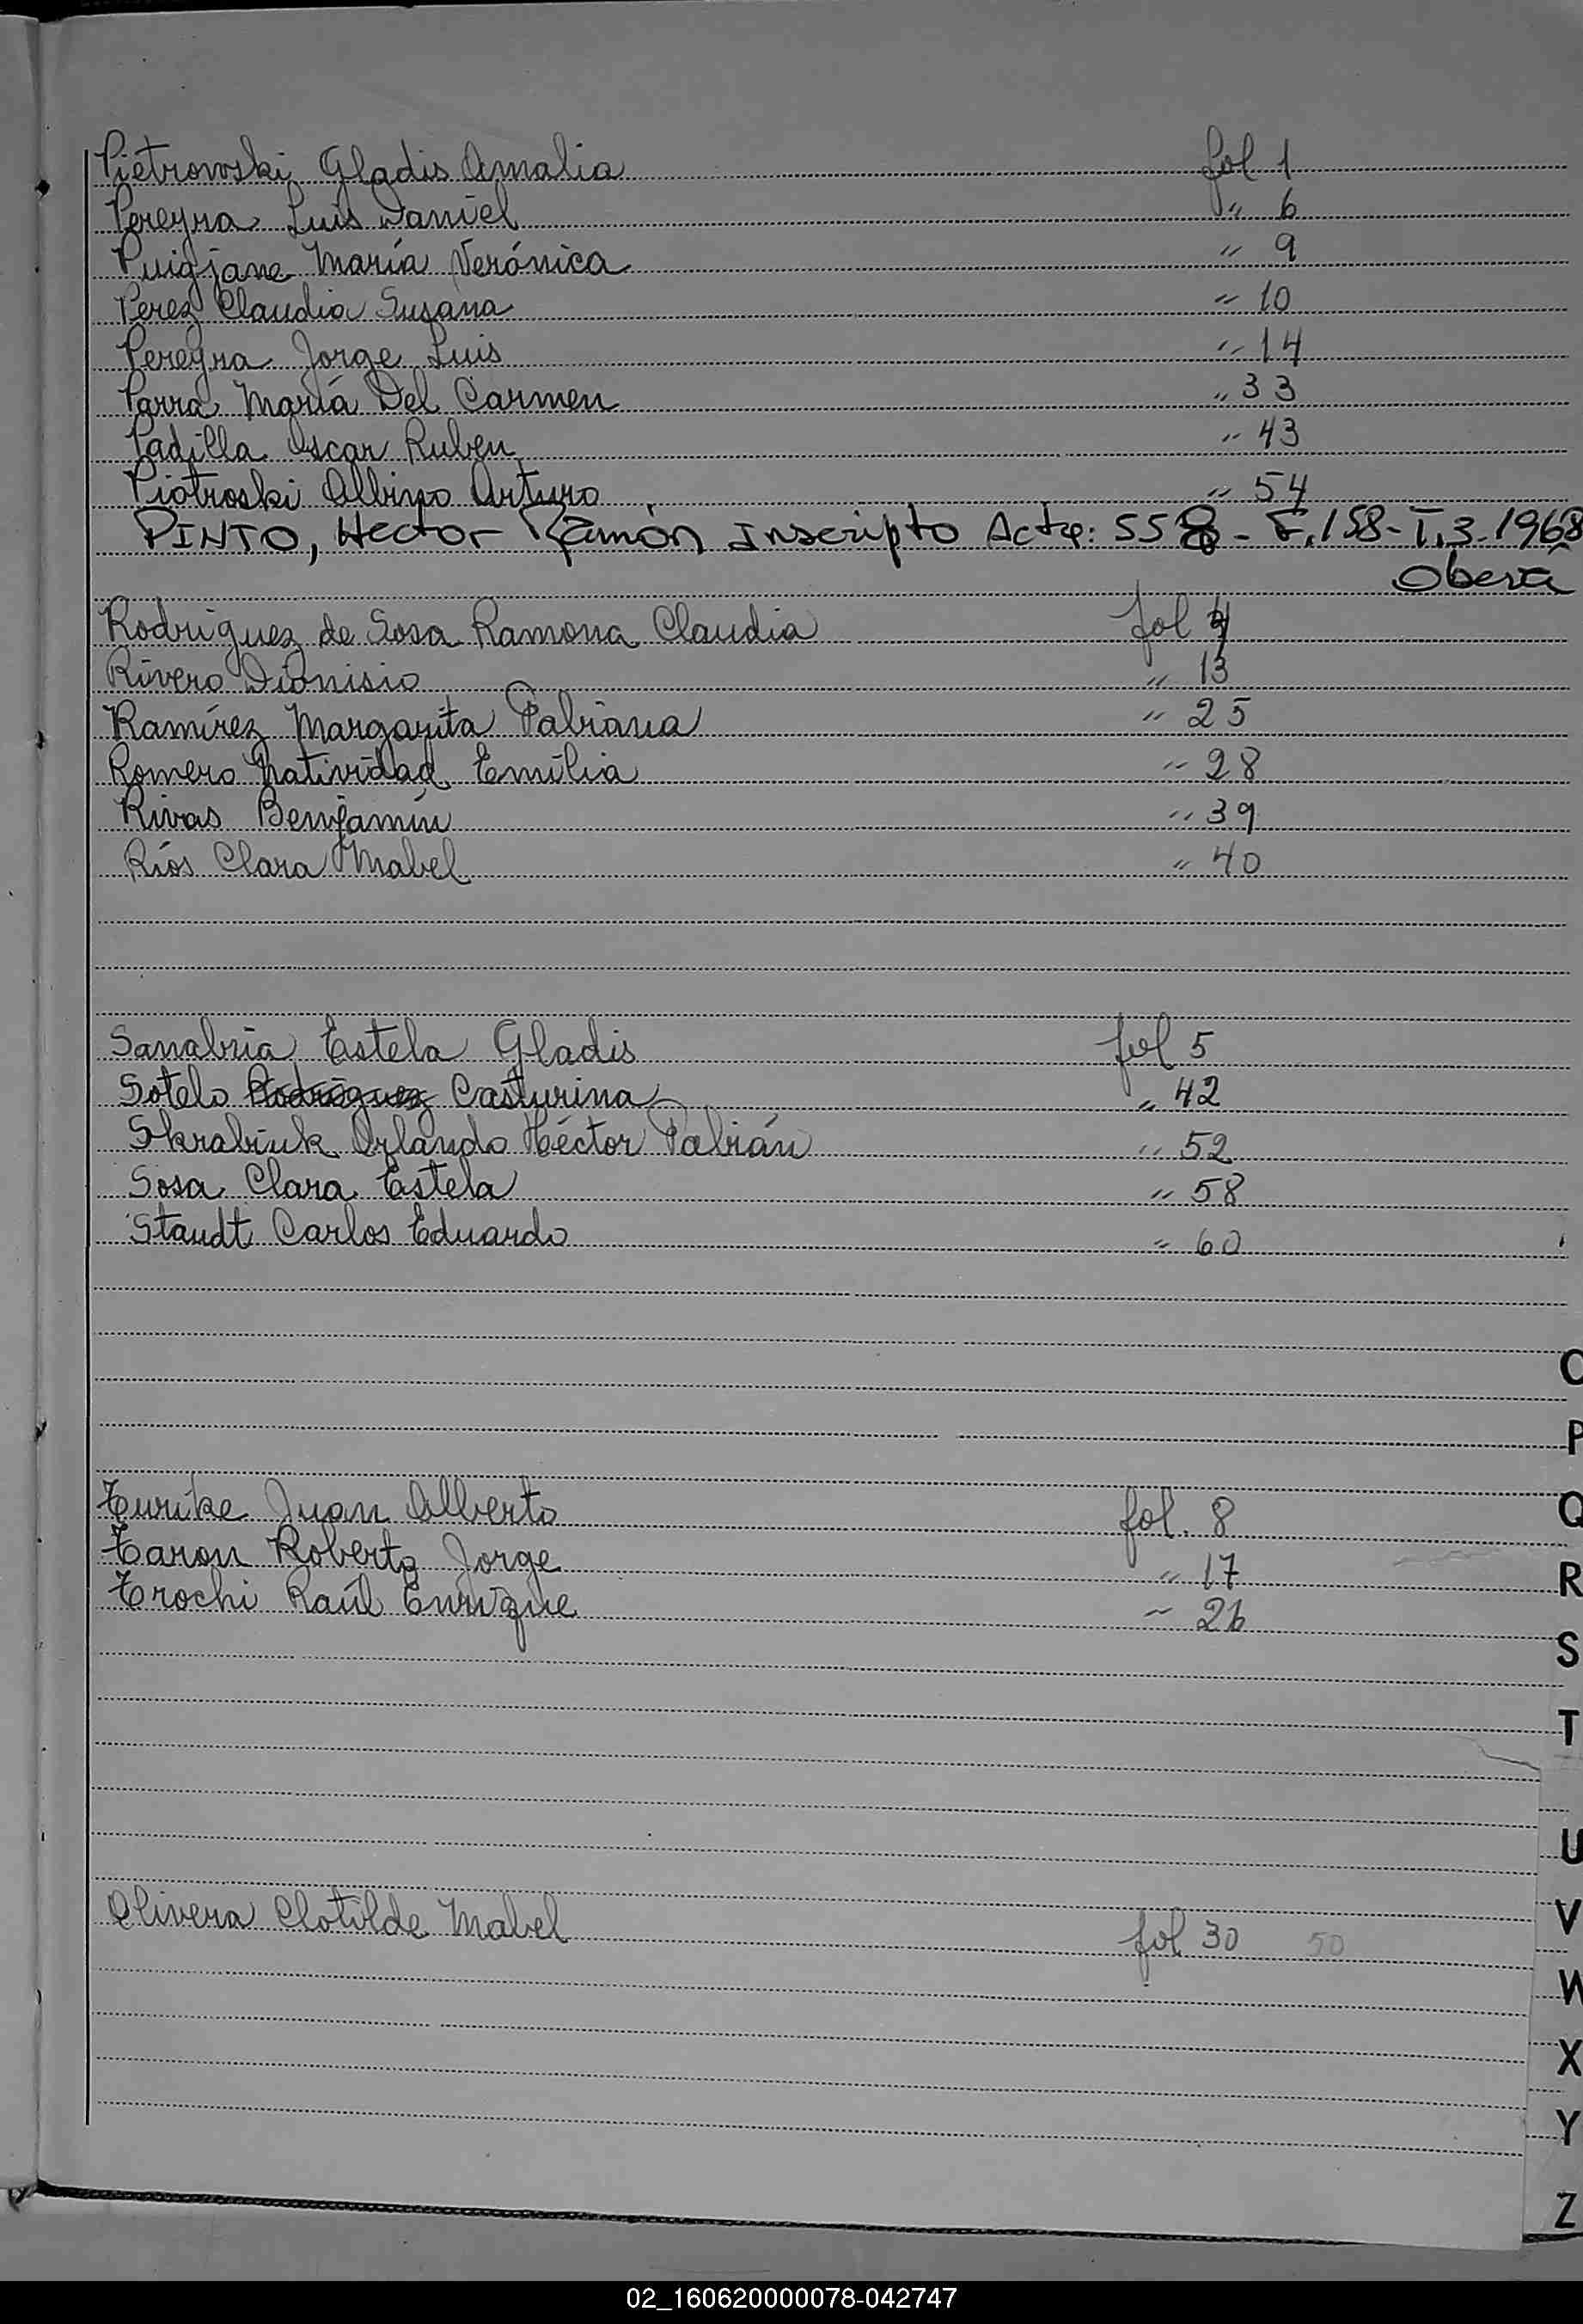 Pietrowski Gladis Amalia fol 1
Pereyra Luis Daniel " 6
Puigjane María Verónica " 9
Perez Claudia Susana " 10
Pereyra Jorge Luis " 14
Parra María Del Carmen " 33
Padilla Oscar Ruben " 43
Piotroski Albino Arturo " 54
PINTO, Hector Ramón Inscripto Acta: 558 - F. 158 - T. 3. 1968
Oberá
Rodriguez de Sosa Ramona Claudia fol 4
Rivero Dionisio " 13
Ramírez Margarita Fabiana " 25
Romero Natividad Emilia " 28
Rivas Benjamín " 39
Ríos Clara Mabel " 40
Sanabria Estela Gladis fol 5
Sotelo Rodriguez Casturina " 42
Skrabiuk Orlando Héctor Fabián " 52
Sosa Clara Estela " 58
Staudt Carlos Eduardo " 60
O
P
Turike Juan Alberto fol. 8
Q
Taron Roberto Jorge " 17
R
Trochi Raúl Enrique " 26
S
T
U
Olivera Clotilde Mabel fol 30 50
V
W
X
Y
Z
02_160620000078-042747